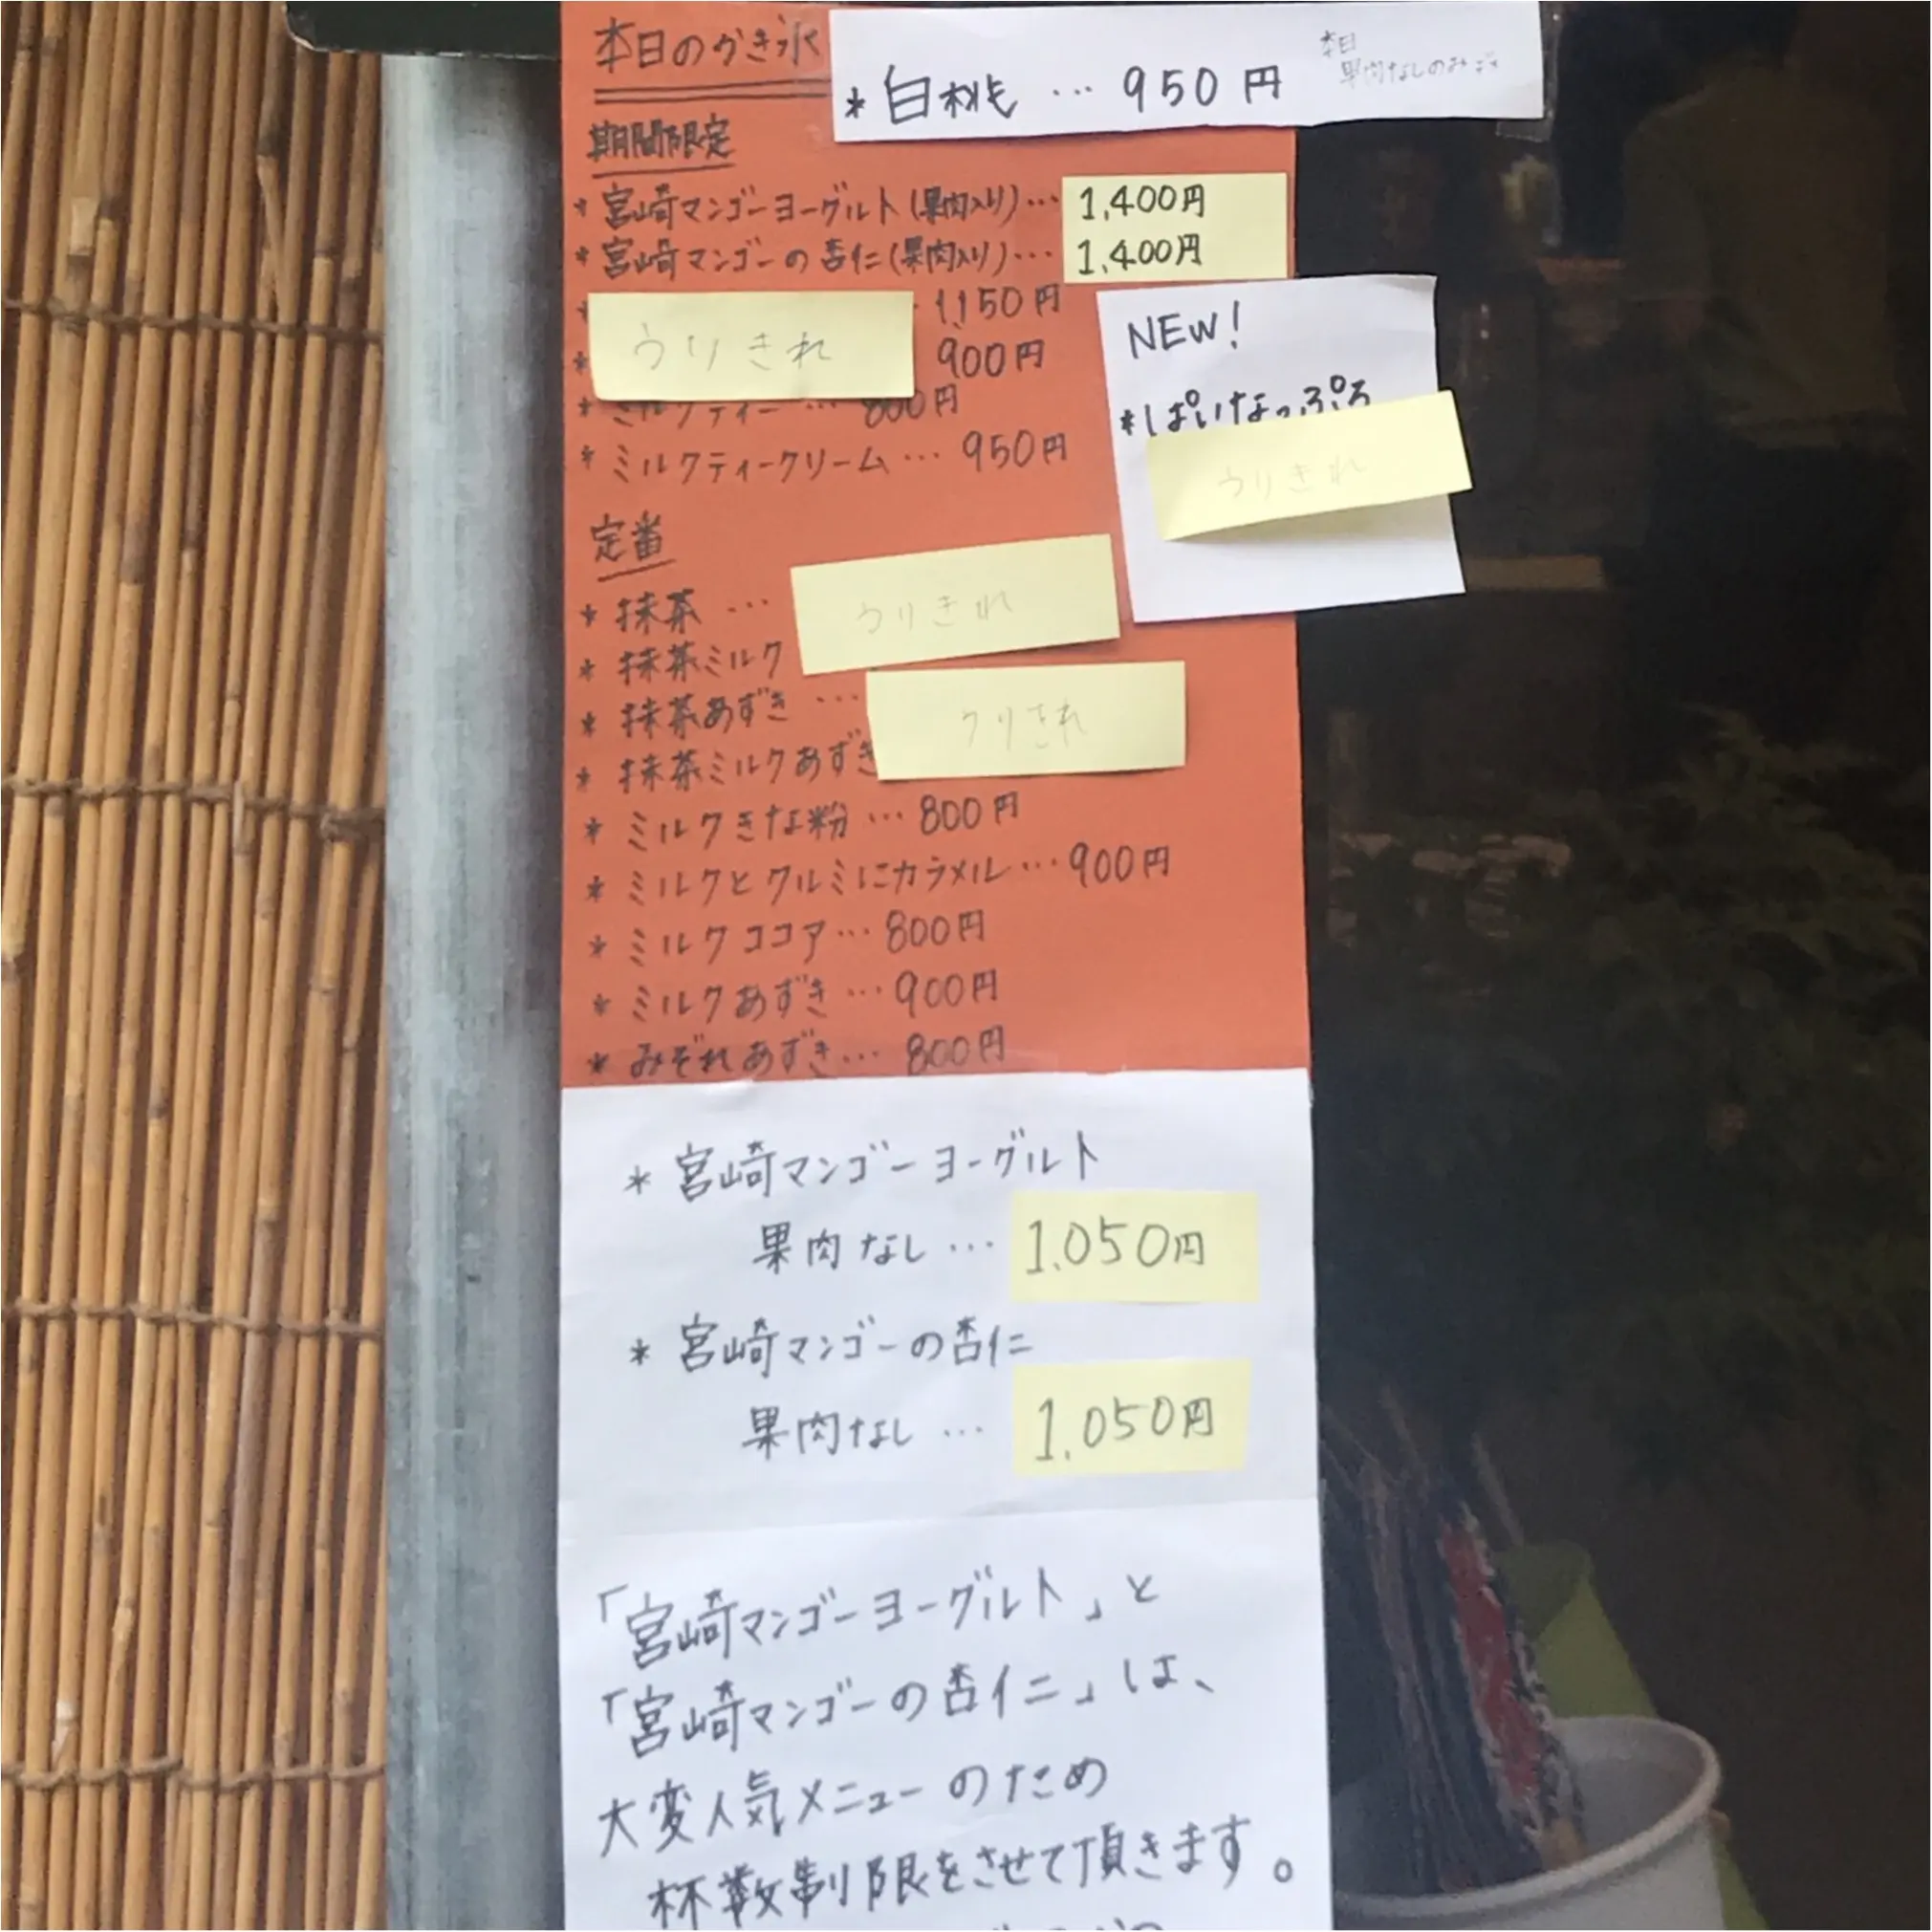 本日のかき氷
*白桃 … 950円
本日
果肉なしのみ
期間限定
*宮崎マンゴーヨーグルト(果肉入り)… 1,400円
*宮崎マンゴーの杏仁(果肉入り)… 1,400円
うりきれ 1,150円
* 900円
*ミルクティー … 800円
*ミルクティークリーム … 950円
NEW!
*ぱいなっぷる
うりきれ
定番
*抹茶 …
うりきれ
*抹茶ミルク
*抹茶あずき …
うりきれ
*抹茶ミルクあずき
*ミルクきな粉 … 800円
*ミルクとクルミにカラメル … 900円
*ミルクココア … 800円
*ミルクあずき … 900円
*みぞれあずき … 800円
*宮崎マンゴーヨーグルト
果肉なし … 1,050円
*宮崎マンゴーの杏仁
果肉なし … 1,050円
「宮崎マンゴーヨーグルト」と
「宮崎マンゴーの杏仁」は、
大変人気メニューのため
杯数制限をさせて頂きます。